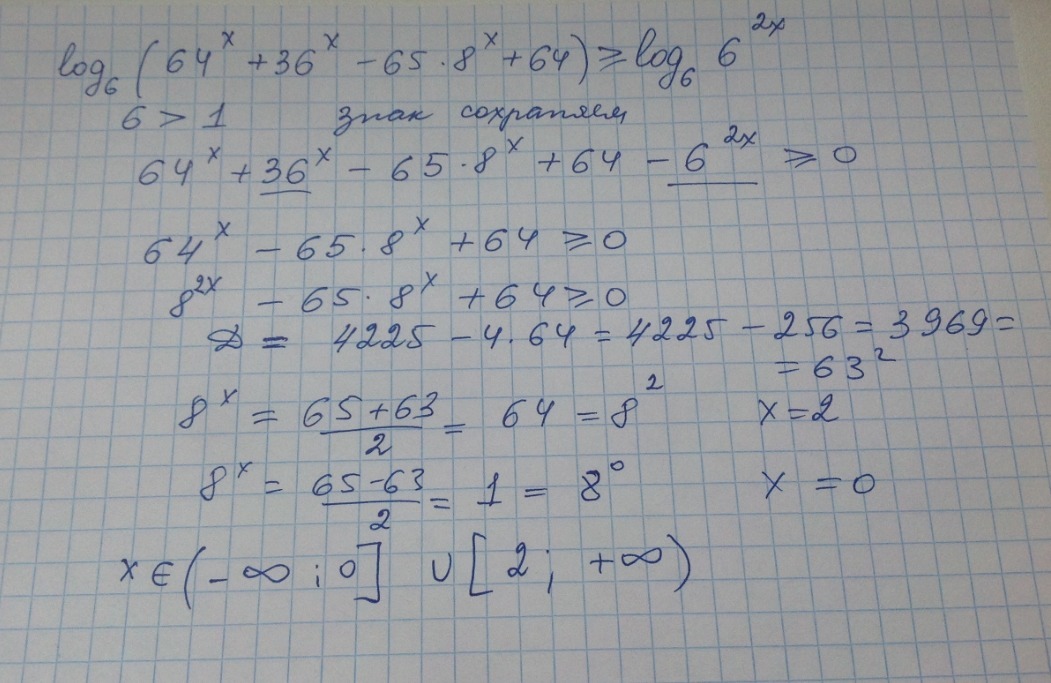 log₆ (64ˣ + 36ˣ − 65·8ˣ + 64) ≥ log₆ 6²ˣ
6 > 1 знак сохраняем
64ˣ + 36ˣ − 65·8ˣ + 64 − 6²ˣ ≥ 0
64ˣ − 65·8ˣ + 64 ≥ 0
8²ˣ − 65·8ˣ + 64 ≥ 0
D = 4225 − 4·64 = 4225 − 256 = 3969 =
= 63²
8ˣ = (65+63)/2 = 64 = 8² x = 2
8ˣ = (65−63)/2 = 1 = 8⁰ x = 0
x ∈ (−∞; 0] ∪ [2; +∞)